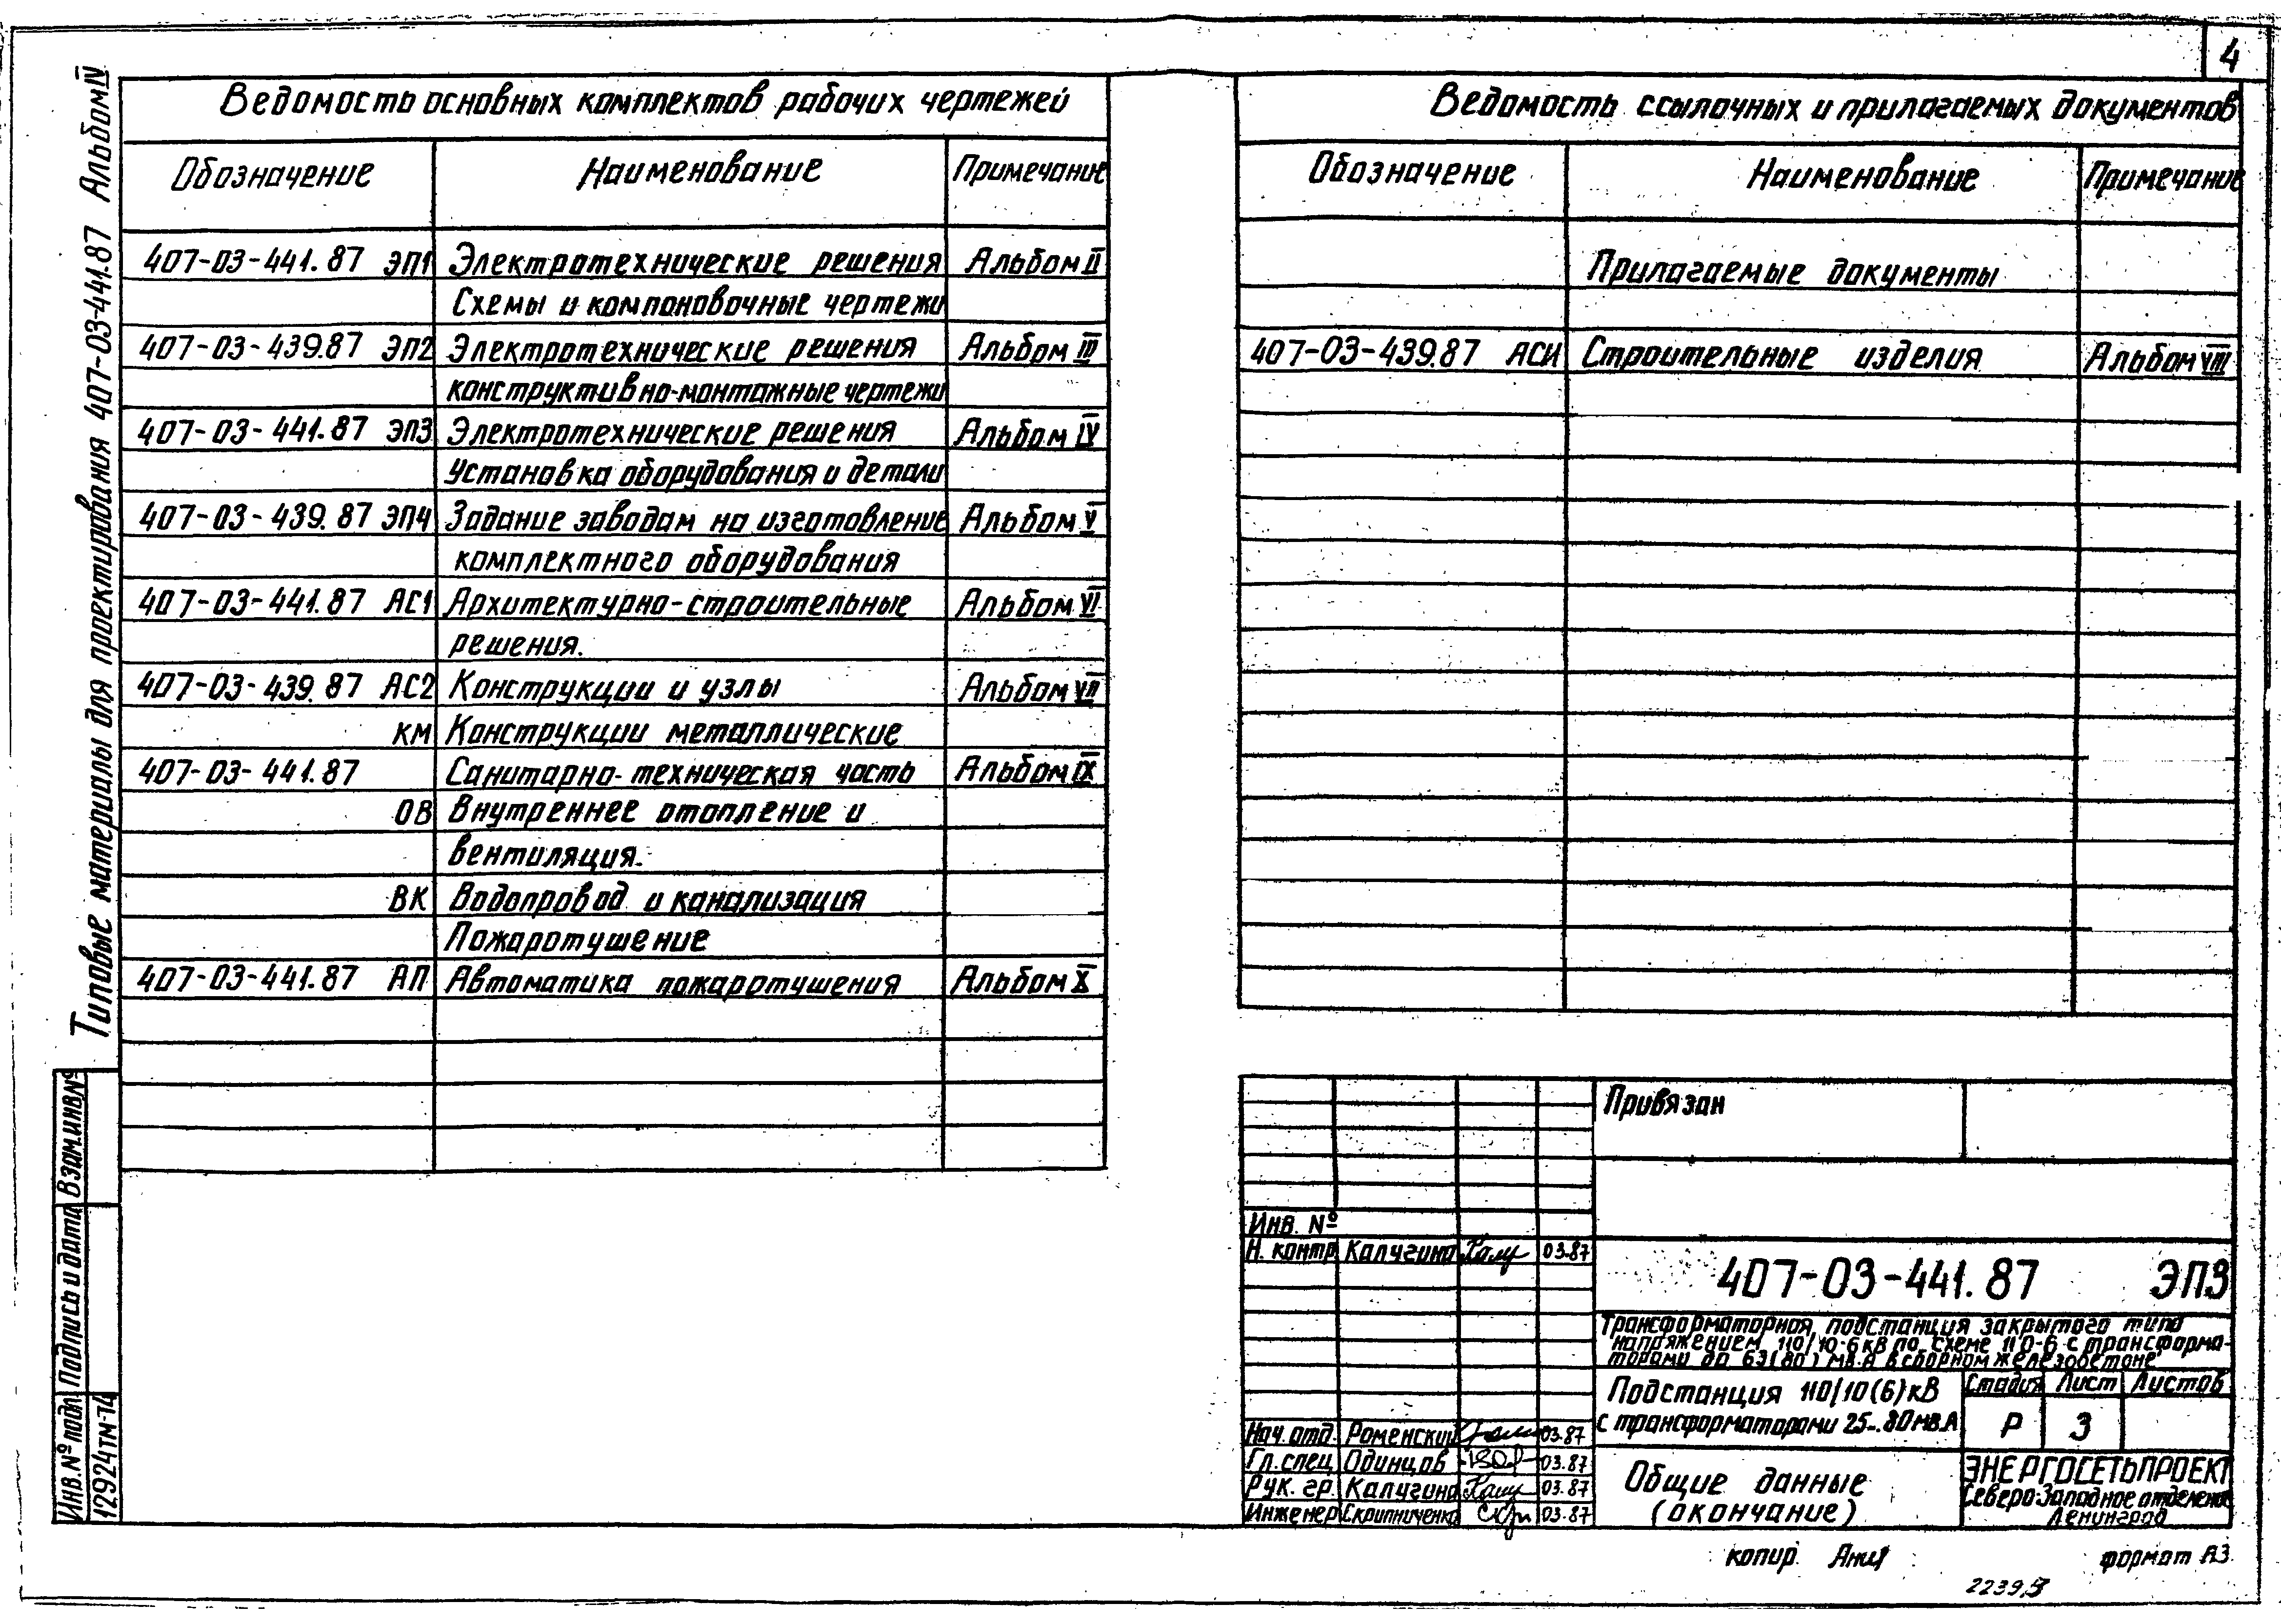 4
Типовые материалы для проектирования 407-03-441.87 Альбом IV
Ведомость основных комплектов рабочих чертежей
Обозначение Наименование Примечание
407-03-441.87 ЭП1 Электротехнические решения Альбом II
Схемы и компоновочные чертежи
407-03-439.87 ЭП2 Электротехнические решения Альбом III
конструктивно-монтажные чертежи
407-03-441.87 ЭП3 Электротехнические решения Альбом IV
Установка оборудования и детали
407-03-439.87 ЭП4 Задание заводам на изготовление Альбом V
комплектного оборудования
407-03-441.87 АС1 Архитектурно-строительные Альбом VI
решения.
407-03-439.87 АС2 Конструкции и узлы Альбом VII
КМ Конструкции металлические
407-03-441.87 Санитарно-техническая часть Альбом IX
ОВ Внутреннее отопление и
вентиляция.
ВК Водопровод и канализация
Пожаротушение
407-03-441.87 АП Автоматика пожаротушения Альбом X
Ведомость ссылочных и прилагаемых документов
Обозначение Наименование Примечание
Прилагаемые документы
407-03-439.87 АСИ Строительные изделия Альбом VIII
Взам.инв.№
Подпись и дата
Инв.№ подл.
12924тм-14
Привязан
Инв. №
Н. контр. Калугина 03.87
407-03-441.87 ЭП3
Трансформаторная подстанция закрытого типа
напряжением 110/10-6 кВ по схеме 110-6 с трансформа-
торами до 63(80) МВ.А в сборном железобетоне
Подстанция 110/10(6)кВ
с трансформаторами 25...80 МВ.А
Стадия Лист Листов
Р 3
Нач. отд. Роменский 03.87
Гл. спец. Одинцов 03.87
Рук. гр. Калугина 03.87
Инженер Скрипниченко 03.87
Общие данные
(окончание)
ЭНЕРГОСЕТЬПРОЕКТ
Северо-Западное отделение
Ленинград
копир. формат А3